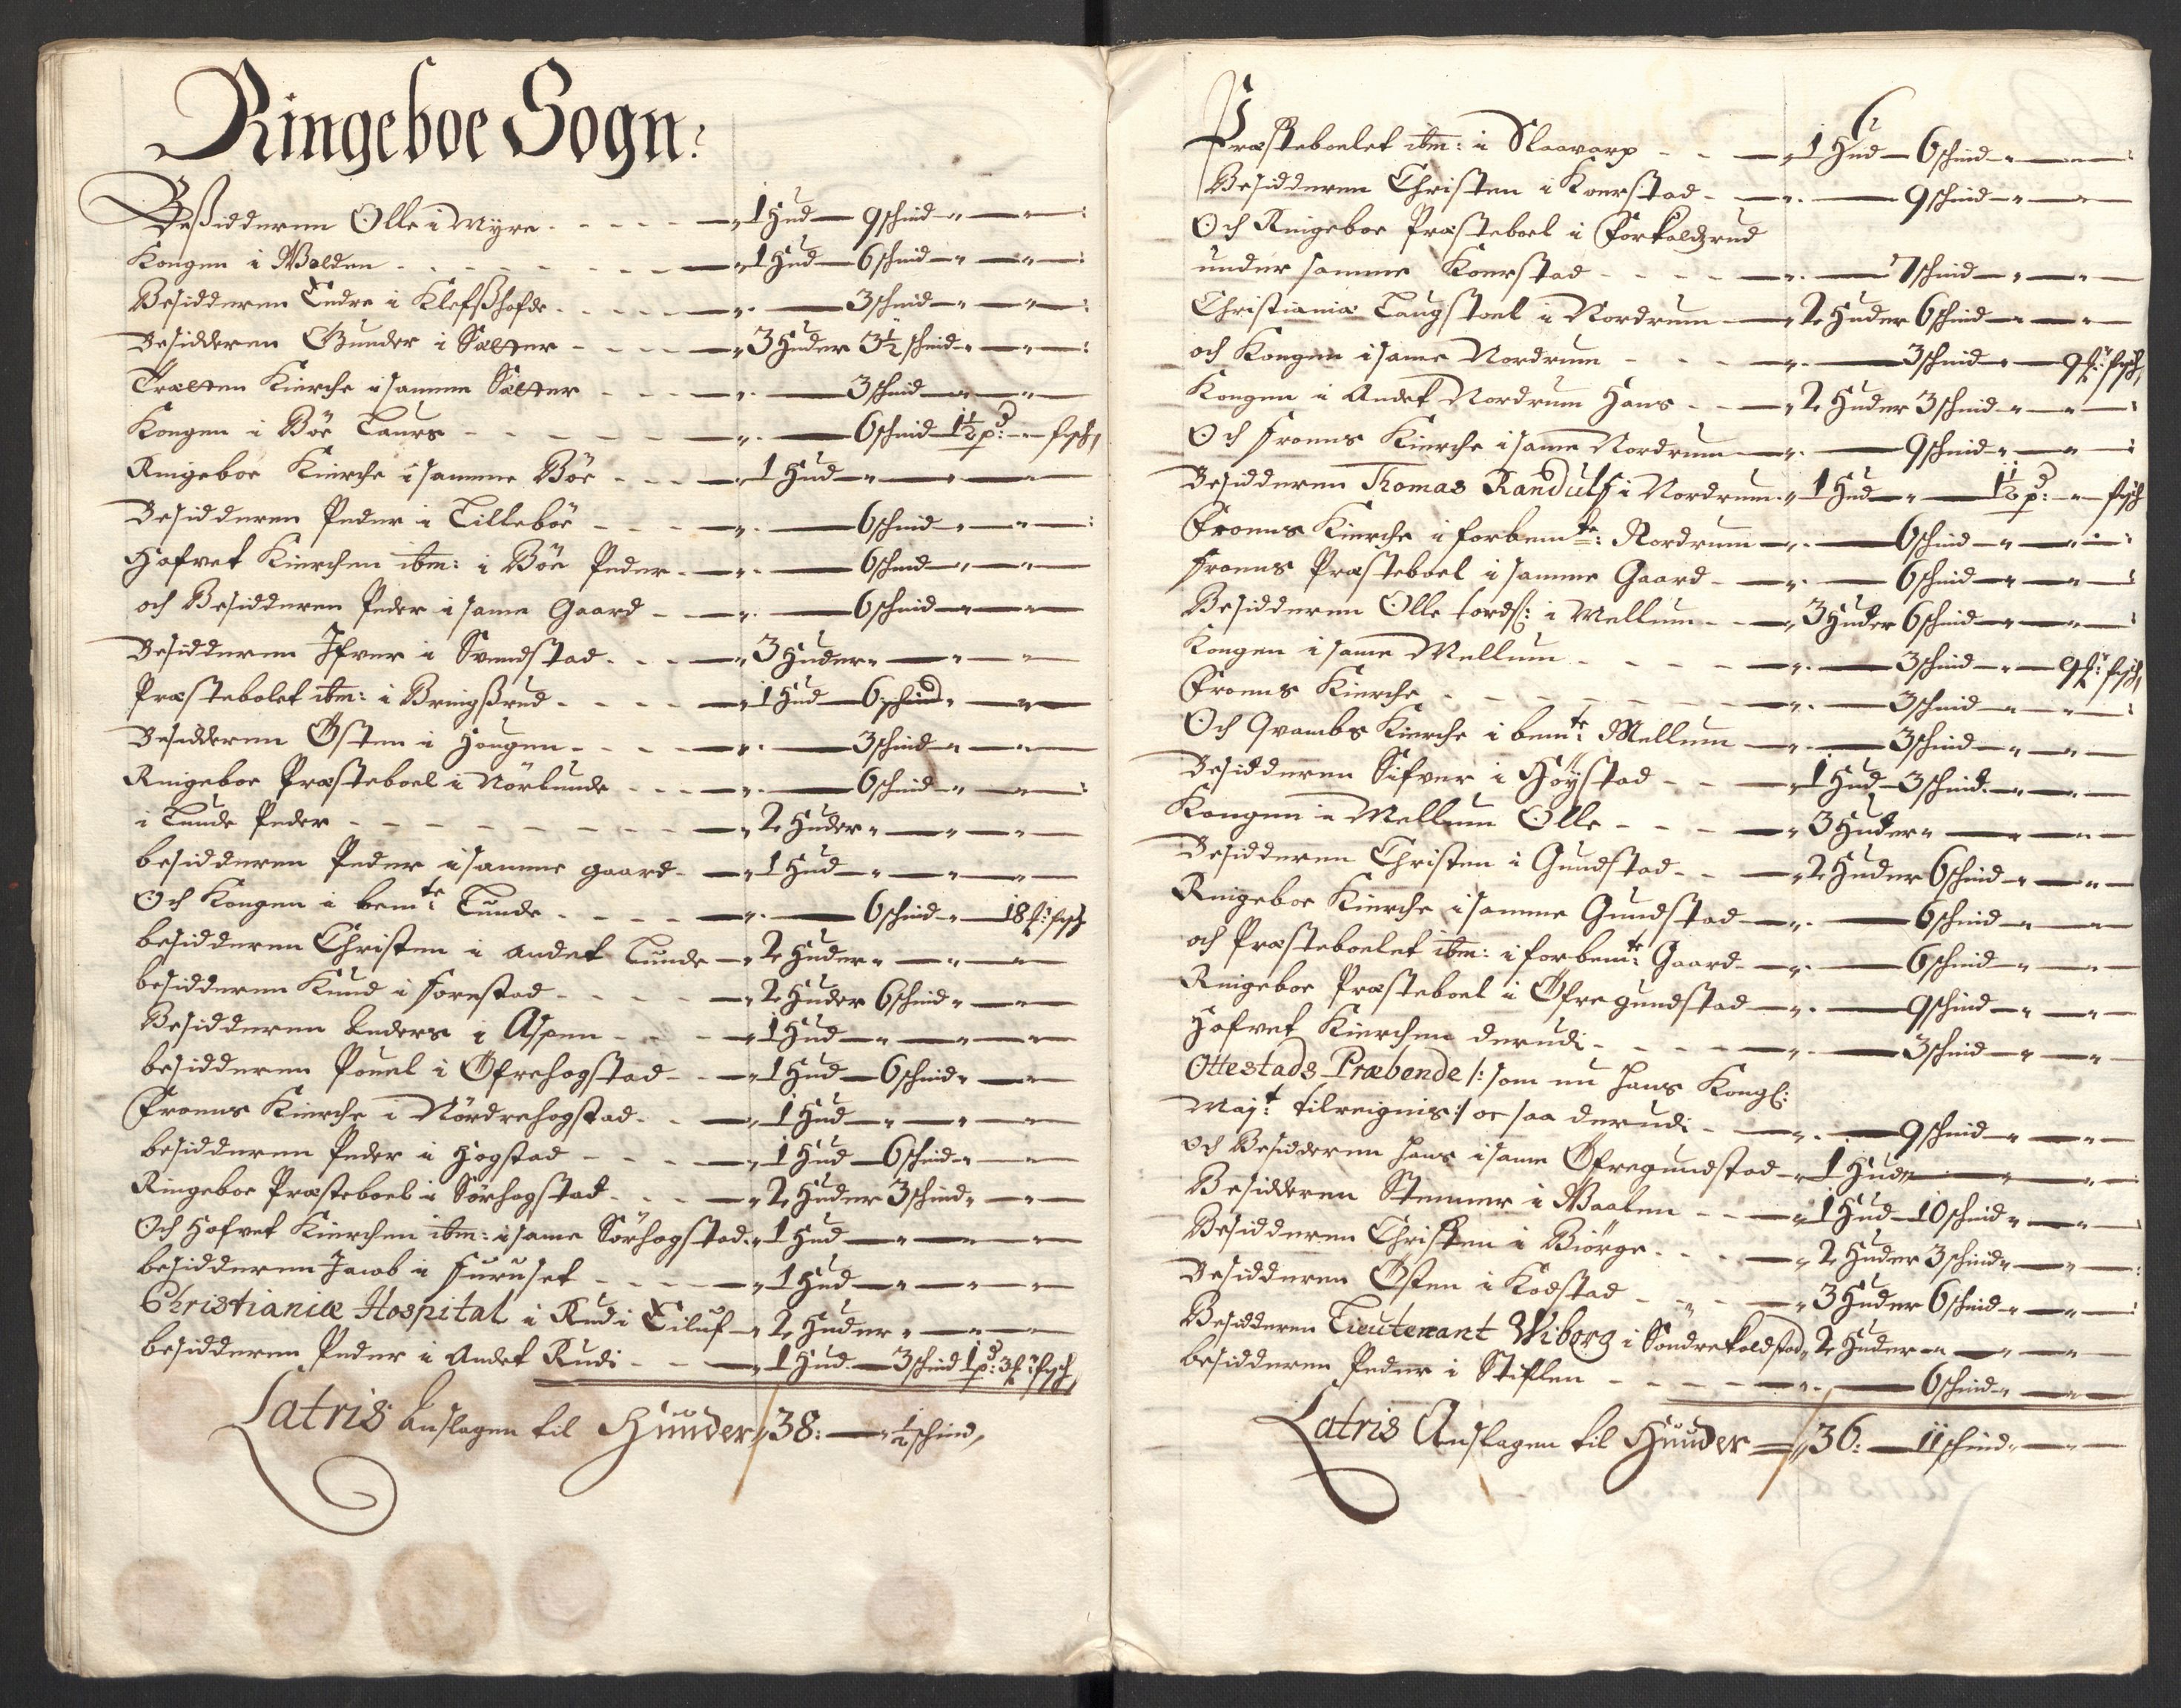 Ringeboe Sogn:
Beßidderen Olle i Myre - - - - 1 Hud 9 schind
Kongen i Wolden - - - - 1 Hud 6 schind
Besidderen Endre i Klefshofde - - - - 3 schind
Besidderen Gunder i Sætter - - - - 3 Huder 3½ schind
Trætten Kierche i samme Sætter - - - 3 schind
Kongen i Böe Laurs - - - - 6 schind 1½ pd: fisch,
Ringeboe Kierche i samme Böe - - - 1 Hud
Besidderen Peder i Lilleböe - - - - 6 schind
Hofvet Kierchen ibm: i Böe Peder - 6 schind
och Besidderen Peder i same Gaard - - 6 schind
Besidderen Ifver i Svendstad - - - 3 Huder
Præstebolet ibm: i Bringsrud - - - - 1 Hud 6 schind
Besidderen Östen i Hougen - - - - 3 schind
Ringeboe Præsteboel i Nörlunde - - - 6 schind
i Lunde Peder - - - - - - - - 2 Huder
besidderen Peder i samme gaard - 1 Hud
Och Kongen i bemte: Lunde - - - - 6 schind 18 f: fisch
besidderen Christen i andet Lunde 2 Huder
besidderen Knud i Forestad - - - - 2 Huder 6 schind
Besidderen Anders i Aspen - - - 1 Hud
besidderen Pouel i Öfrehogstad - - 1 Hud 6 schind
Froens Kierche i Nördrehogstad - - 1 Hud
besidderen Peder i Hogstad - - - 1 Hud 6 schind
Ringeboe Præsteboel i Sörhogstad - - - 2 Huder 3 schind
Och Hofvet Kierchen ibm: i same Sörhogstad 1 Hud
besidderen Jacob i Furuset - - - - 1 Hud
Christianiæ Hospital i Rudi Eiluf 2 Huder
besidderen Peder i Andet Rudi - - 1 Hud 3 schind 1 pd: 3 f: fisch,
Latris Anslagen til Huuder 38: ½ schind,
6
Præsteboelet ibm: i Slaavarp - - 1 Hud 6 schind
Besidderen Christen i Koerstad - 9 schind
Och Ringeboe Præsteboel i Forkaldzrud
under samme Koerstad - - - - 7 schind
Christiania Laugstoel i Nordrum 2 Huder 6 schind
och Kongen i same Nordrum - - - 3 schind 9 f: fisch,
Kongen i Andet Nordrum Hans - - 2 Huder 3 schind
Och Froens Kierche i same Nordrum 9 schind
Besidderen Thomas Randulf i Nordrum 1 Hud 1½ pd: fisch
Froens Kierche i forbemte: Nordrum 6 schind
Froens Præsteboel i samme Gaard - 6 schind
Besidderen Olle Tords: i Mellum - - 3 Huder 6 schind
Kongen i same Mellum - - - - 3 schind 9 f: fisch,
Froens Kierche - - - - - - 3 schind
Och Qvambs Kierche i bemte: Mellum 3 schind
Besidderen Sifver i Höystad - - 1 Hud 3 schind
Kongen i Mellum Olle - - - 3 Huder
Besidderen Christen i Gundstad - - 2 Huder 6 schind
Ringeboe Kierche i samme Gundstad 6 schind
och Præsteboelet ibm: i forbemte: Gaard 6 schind
Ringeboe Præsteboel i Öfregundstad 9 schind
Hofvet Kierchen derudi - - - - 3 schind
Ottestads Præbende /: som nu Hans Kongl:
Majt: tilreignis :/ oc saa derudi - 9 schind
Och Besidderen Hans i same Öfregundstad 1 Hud
Besidderen Stenner i Waalen - - 1 Hud 10 schind
Besidderen Christen i Biörge - - - 2 Huder 3 schind
Besidderen Östen i Kodstad - - - - 3 Huder 6 schind
Besidderen Lieutenant Wiborg i Söndrekoldstad 2 Huder
besidderen Peder i Stiflen - - - - 6 schind
Latris Anslagen til Huuder 36: 11 schind